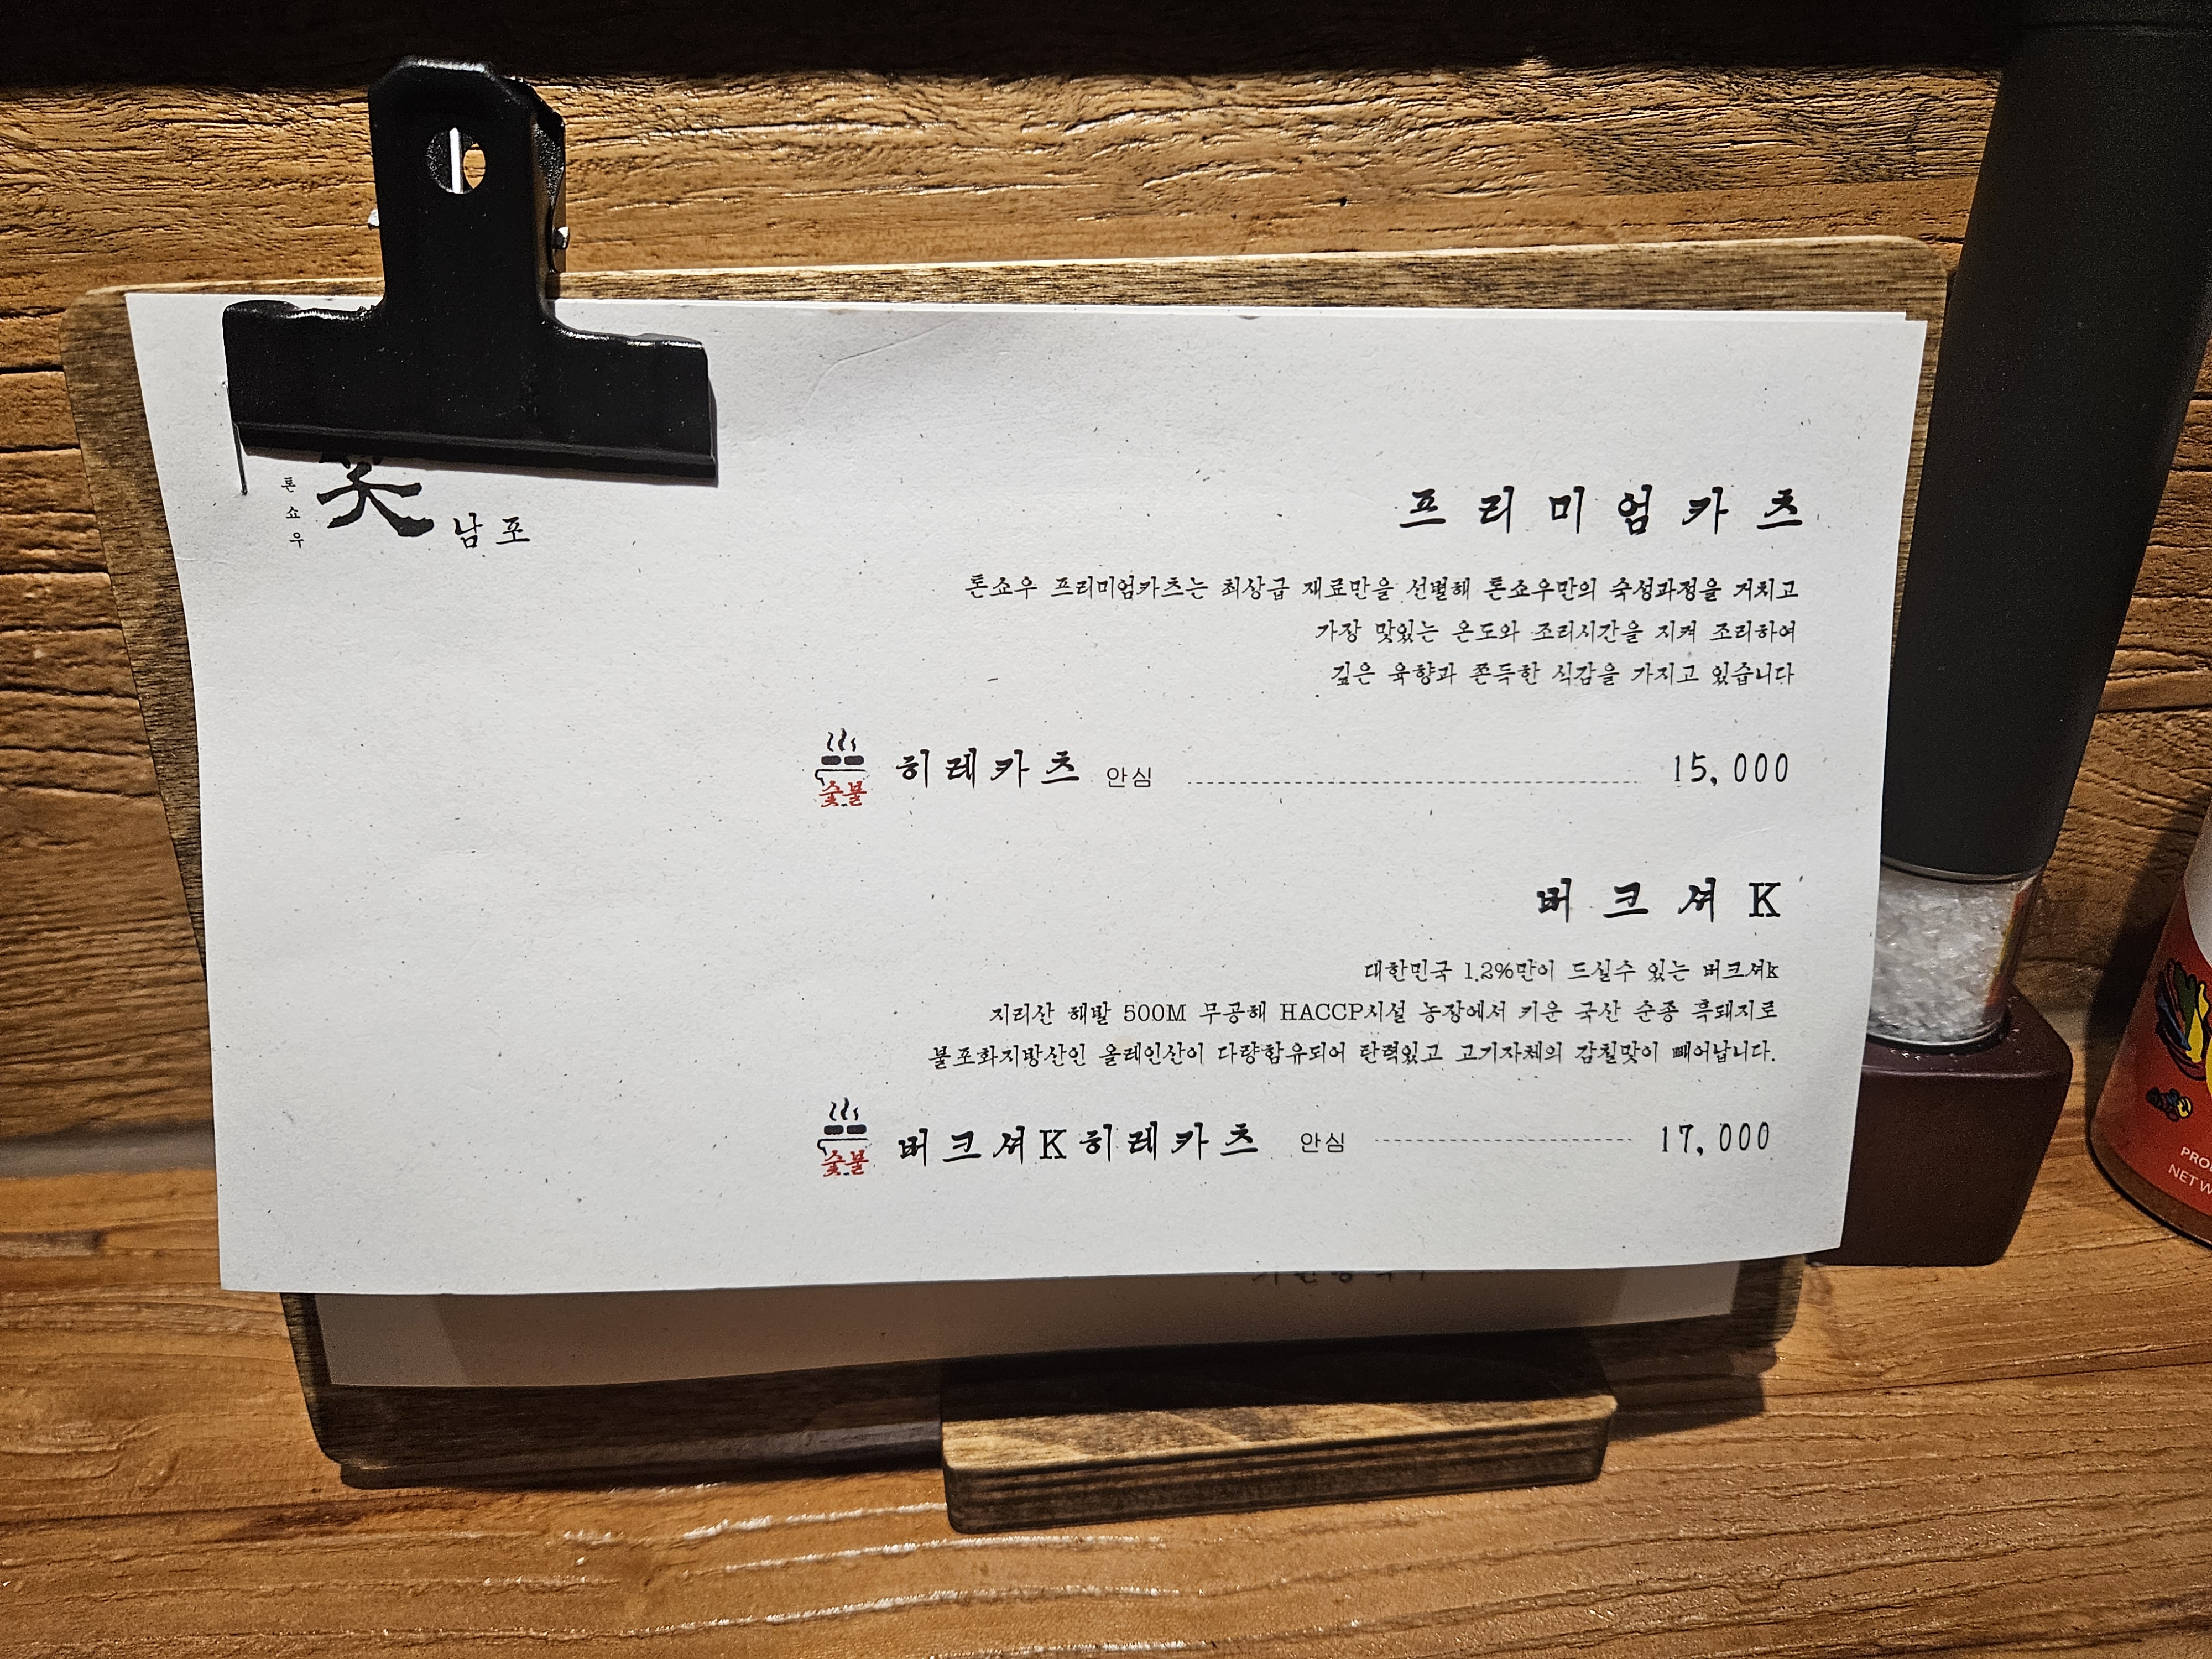 톤쇼우
남포
프리미엄카츠
톤쇼우 프리미엄카츠는 최상급 재료만을 선별해 톤쇼우만의 숙성과정을 거치고
가장 맛있는 온도와 조리시간을 지켜 조리하여
깊은 육향과 쫀득한 식감을 가지고 있습니다
숯불 히레카츠 안심 15,000
버크셔K
대한민국 1.2%만이 드실수 있는 버크셔k
지리산 해발 500M 무공해 HACCP시설 농장에서 키운 국산 순종 흑돼지로
불포화지방산인 올레인산이 다량함유되어 탄력있고 고기자체의 감칠맛이 빼어납니다.
숯불 버크셔K히레카츠 안심 17,000
NET